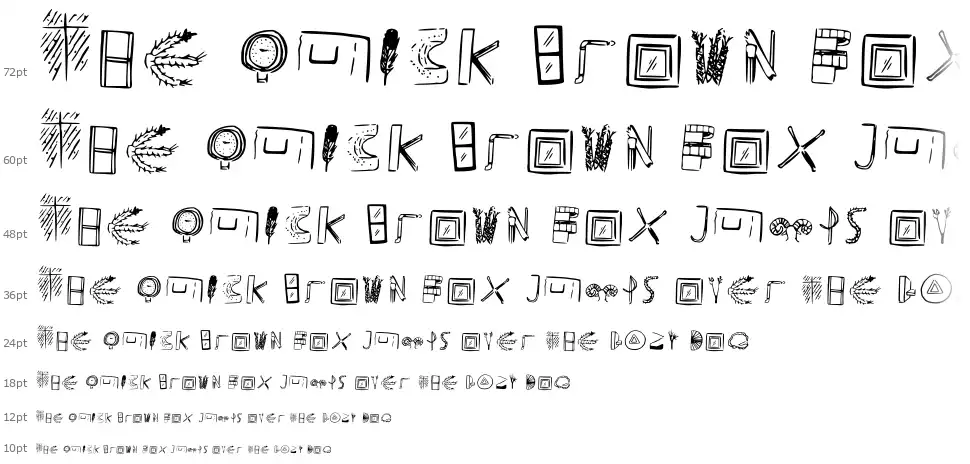 72pt The Quick Brown Fox
60pt The Quick Brown Fox Ju
48pt The Quick Brown Fox Jumps Ov
36pt The Quick Brown Fox Jumps Over The La
24pt The Quick Brown Fox Jumps Over The Lazy Dog
18pt The Quick Brown Fox Jumps Over The Lazy Dog
12pt The Quick Brown Fox Jumps Over The Lazy Dog
10pt The Quick Brown Fox Jumps Over The Lazy Dog